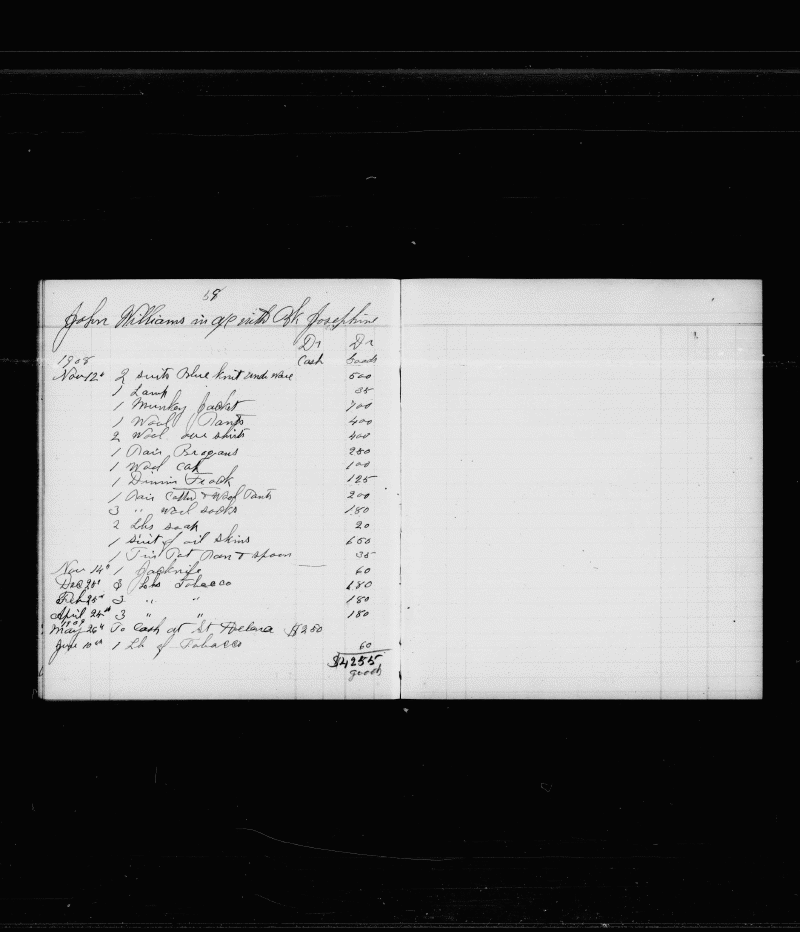 58
John Williams in a/c with Bk Josephine
Dr Dr
1908 Cash Goods
Nov 12" 2 suits Blue knit under ware 500
1 Lamp 35
1 Munkey Jacket 700
1 Wool Pants 400
2 Wool over shirts 400
1 Pair Brogans 250
1 Wool Cap 100
1 Dimin Frock 125
1 Pair Cotton & Wool Pants 200
3 " Wool socks 180
2 Lbs soap 20
1 suit of oil skins 650
1 Tin Pot Pan & spoon 35
Nov 14" 1 Jacknife 60
Dec 25" 3 Lbs Tobacco 180
Feb 25" 3 " " 180
April 24th 3 " " 180
1909
May 26" To Cash at St Helena $2.50
June 10th 1 Lb of Tobacco 60
$4255
goods